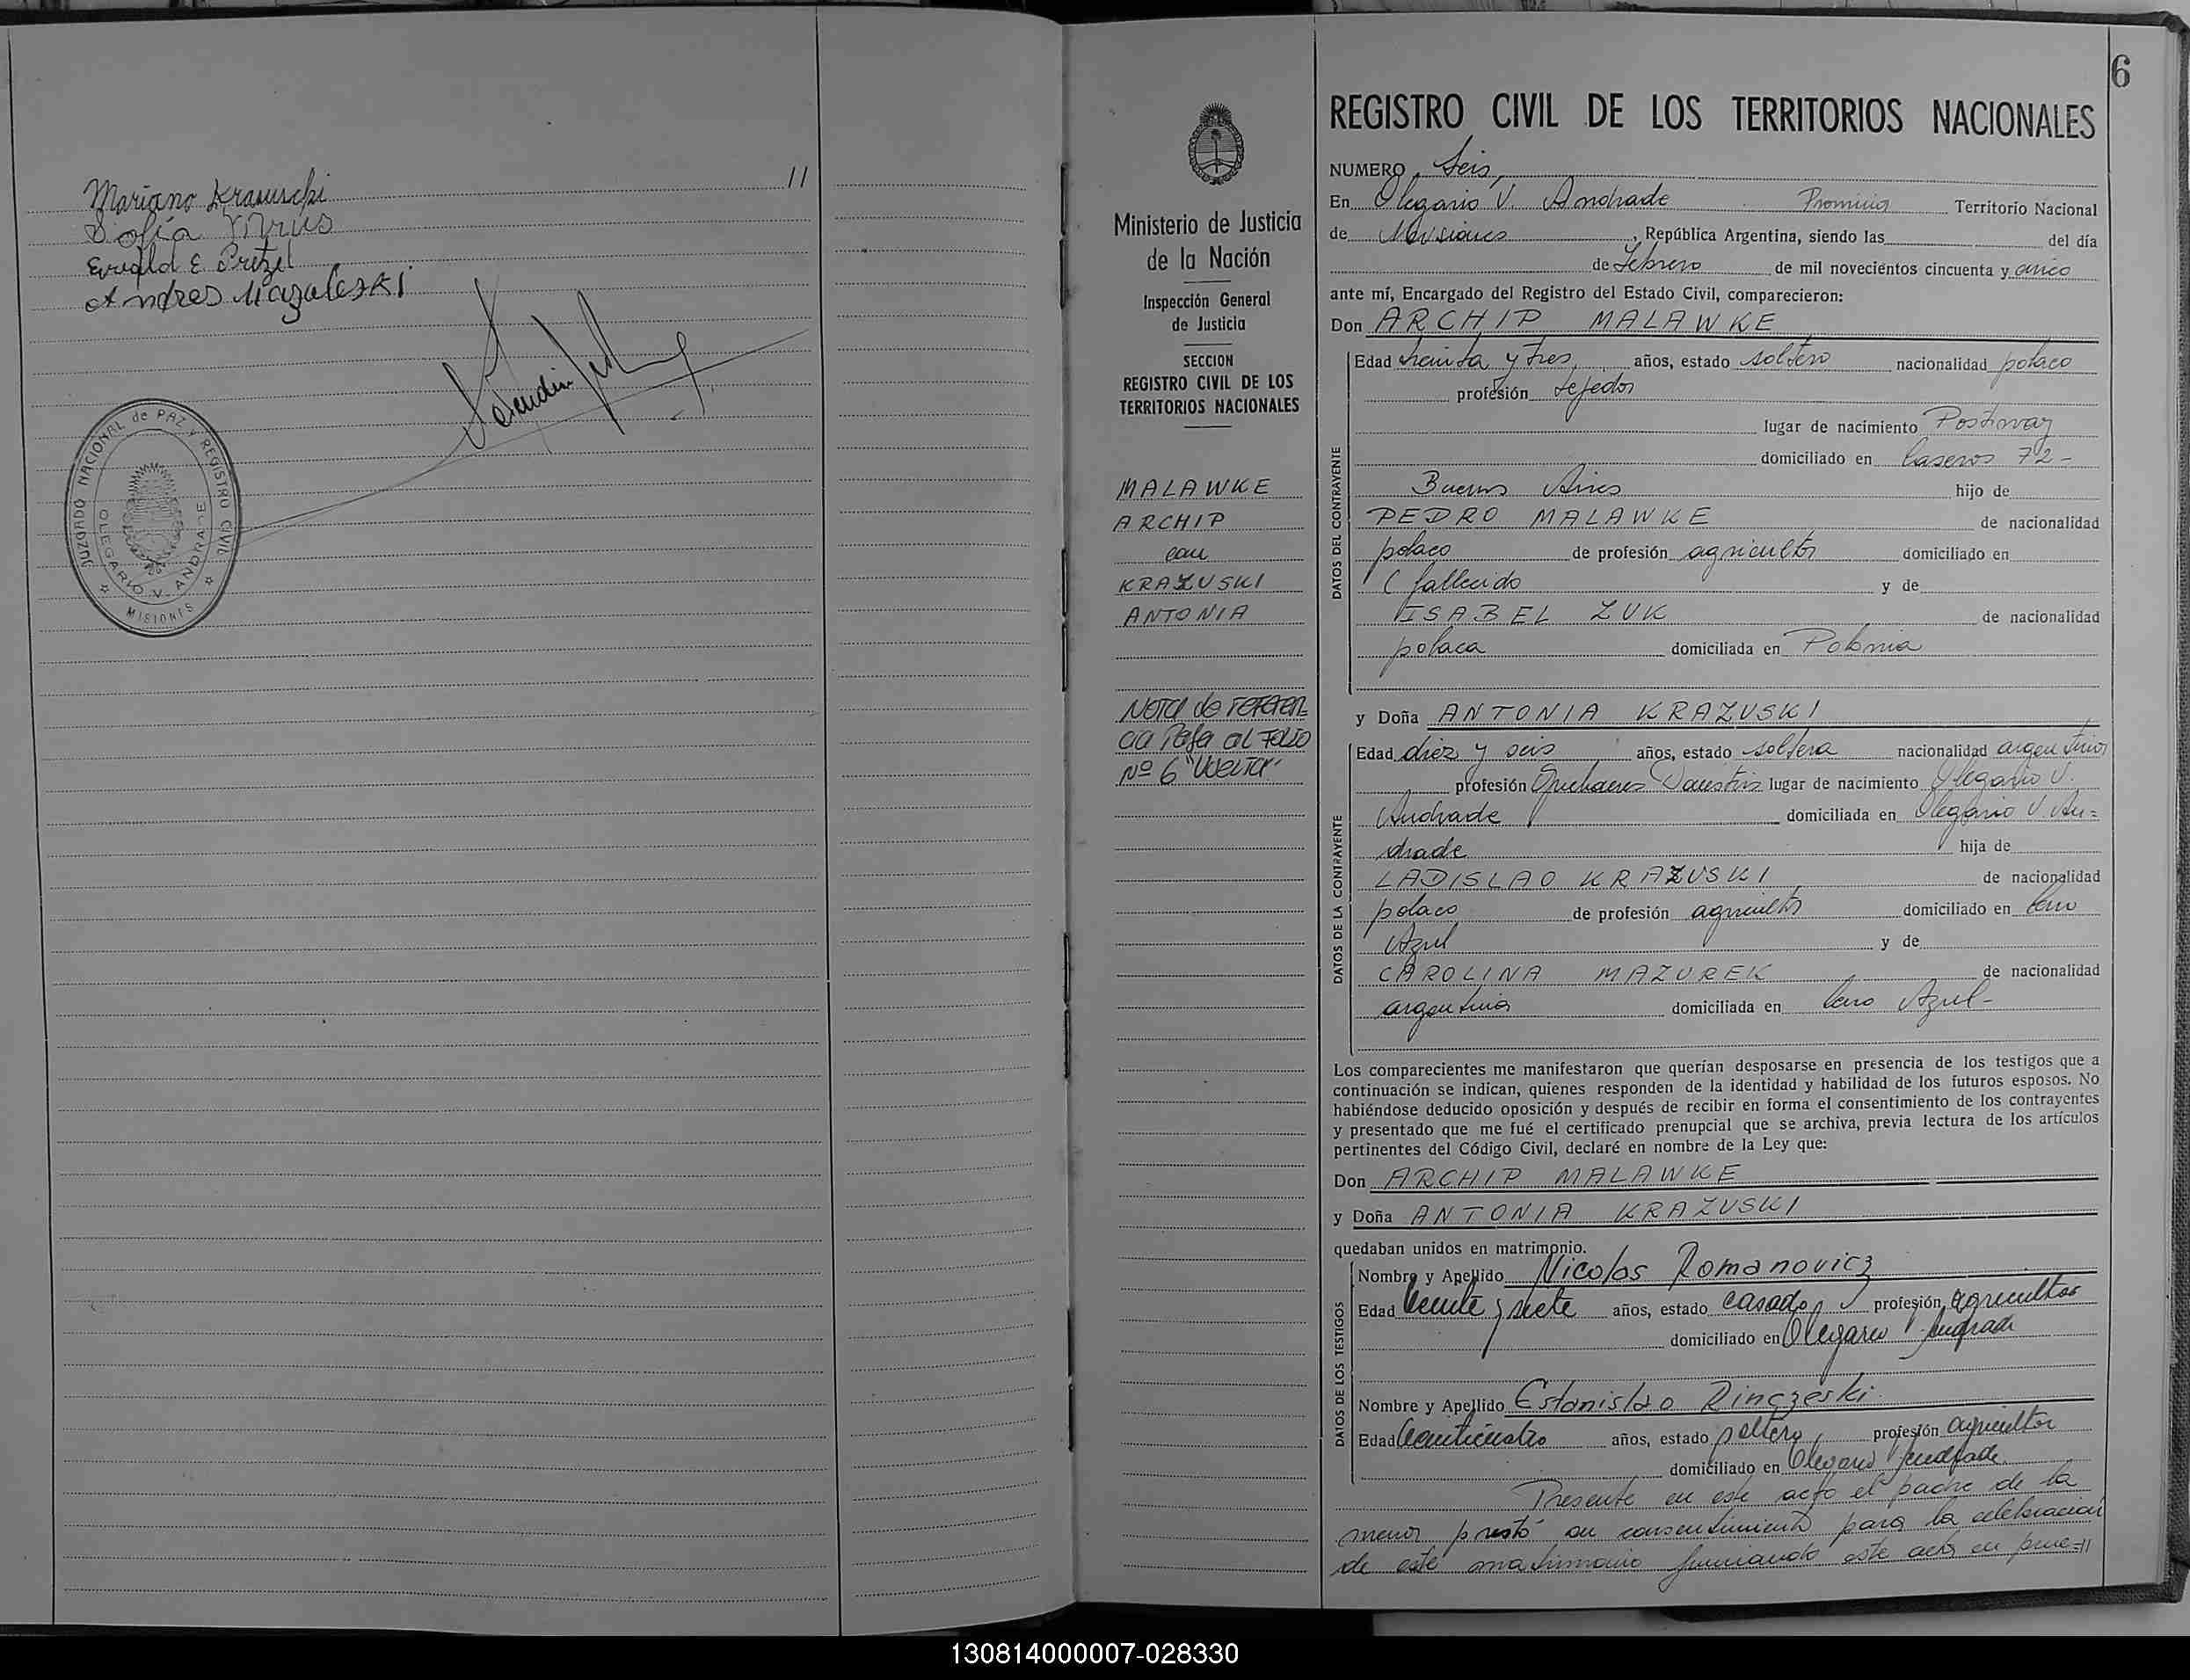 11
Mariano Krasuschi
Sofia
Ewald E Pretzel
Andres
JUZGADO NACIONAL de PAZ Y REGISTRO CIVIL
OLEGARIO V. ANDRADE
MISIONES
6
Ministerio de Justicia
de la Nación
Inspección General
de Justicia
SECCION
REGISTRO CIVIL DE LOS
TERRITORIOS NACIONALES
MALAWKE
ARCHIP
con
KRAZUSKI
ANTONIA
Nota de referen
cia Pasa al Folio
Nº 6 "Vuelta"
REGISTRO CIVIL DE LOS TERRITORIOS NACIONALES
NUMERO Seis,
En Olegario V. Andrade Provincia Territorio Nacional
de Misiones, República Argentina, siendo las del día
de Febrero de mil novecientos cincuenta y cinco
ante mí, Encargado del Registro del Estado Civil, comparecieron:
Don ARCHIP MALAWKE
DATOS DEL CONTRAYENTE
Edad treinta y tres años, estado soltero nacionalidad polaco
profesión tejedor
lugar de nacimiento
domiciliado en Caseros 72-
Buenos Aires hijo de
PEDRO MALAWKE de nacionalidad
polaco de profesión agricultor domiciliado en
( fallecido y de
ISABEL ZUK de nacionalidad
polaca domiciliada en Polonia
y Doña ANTONIA KRAZUSKI
DATOS DE LA CONTRAYENTE
Edad diez y seis años, estado soltera nacionalidad argentina
profesión Quehaceres lugar de nacimiento Olegario V.
Andrade domiciliada en Olegario V. An=
drade hija de
LADISLAO KRAZUSKI de nacionalidad
polaco de profesión agricultor domiciliado en Cerro
Azul y de
CAROLINA MAZUREK de nacionalidad
argentina domiciliada en Cerro Azul-
Los comparecientes me manifestaron que querían desposarse en presencia de los testigos que a
continuación se indican, quienes responden de la identidad y habilidad de los futuros esposos. No
habiéndose deducido oposición y después de recibir en forma el consentimiento de los contrayentes
y presentado que me fué el certificado prenupcial que se archiva, previa lectura de los artículos
pertinentes del Código Civil, declaré en nombre de la Ley que:
Don ARCHIP MALAWKE
y Doña ANTONIA KRAZUSKI
quedaban unidos en matrimonio.
DATOS DE LOS TESTIGOS
Nombre y Apellido Nicolas Romanovicz
Edad veinte y siete años, estado casado profesión agricultor
domiciliado en Olegario Andrade
Nombre y Apellido Estanislao Rinczeski
Edad veinticuatro años, estado soltero profesión agricultor
domiciliado en Olegario Andrade.
Presente en este acto el padre de la
menor prestó su consentimiento para la celebracion
de este matrimonio firmando este acta en prue=11
130814000007-028330